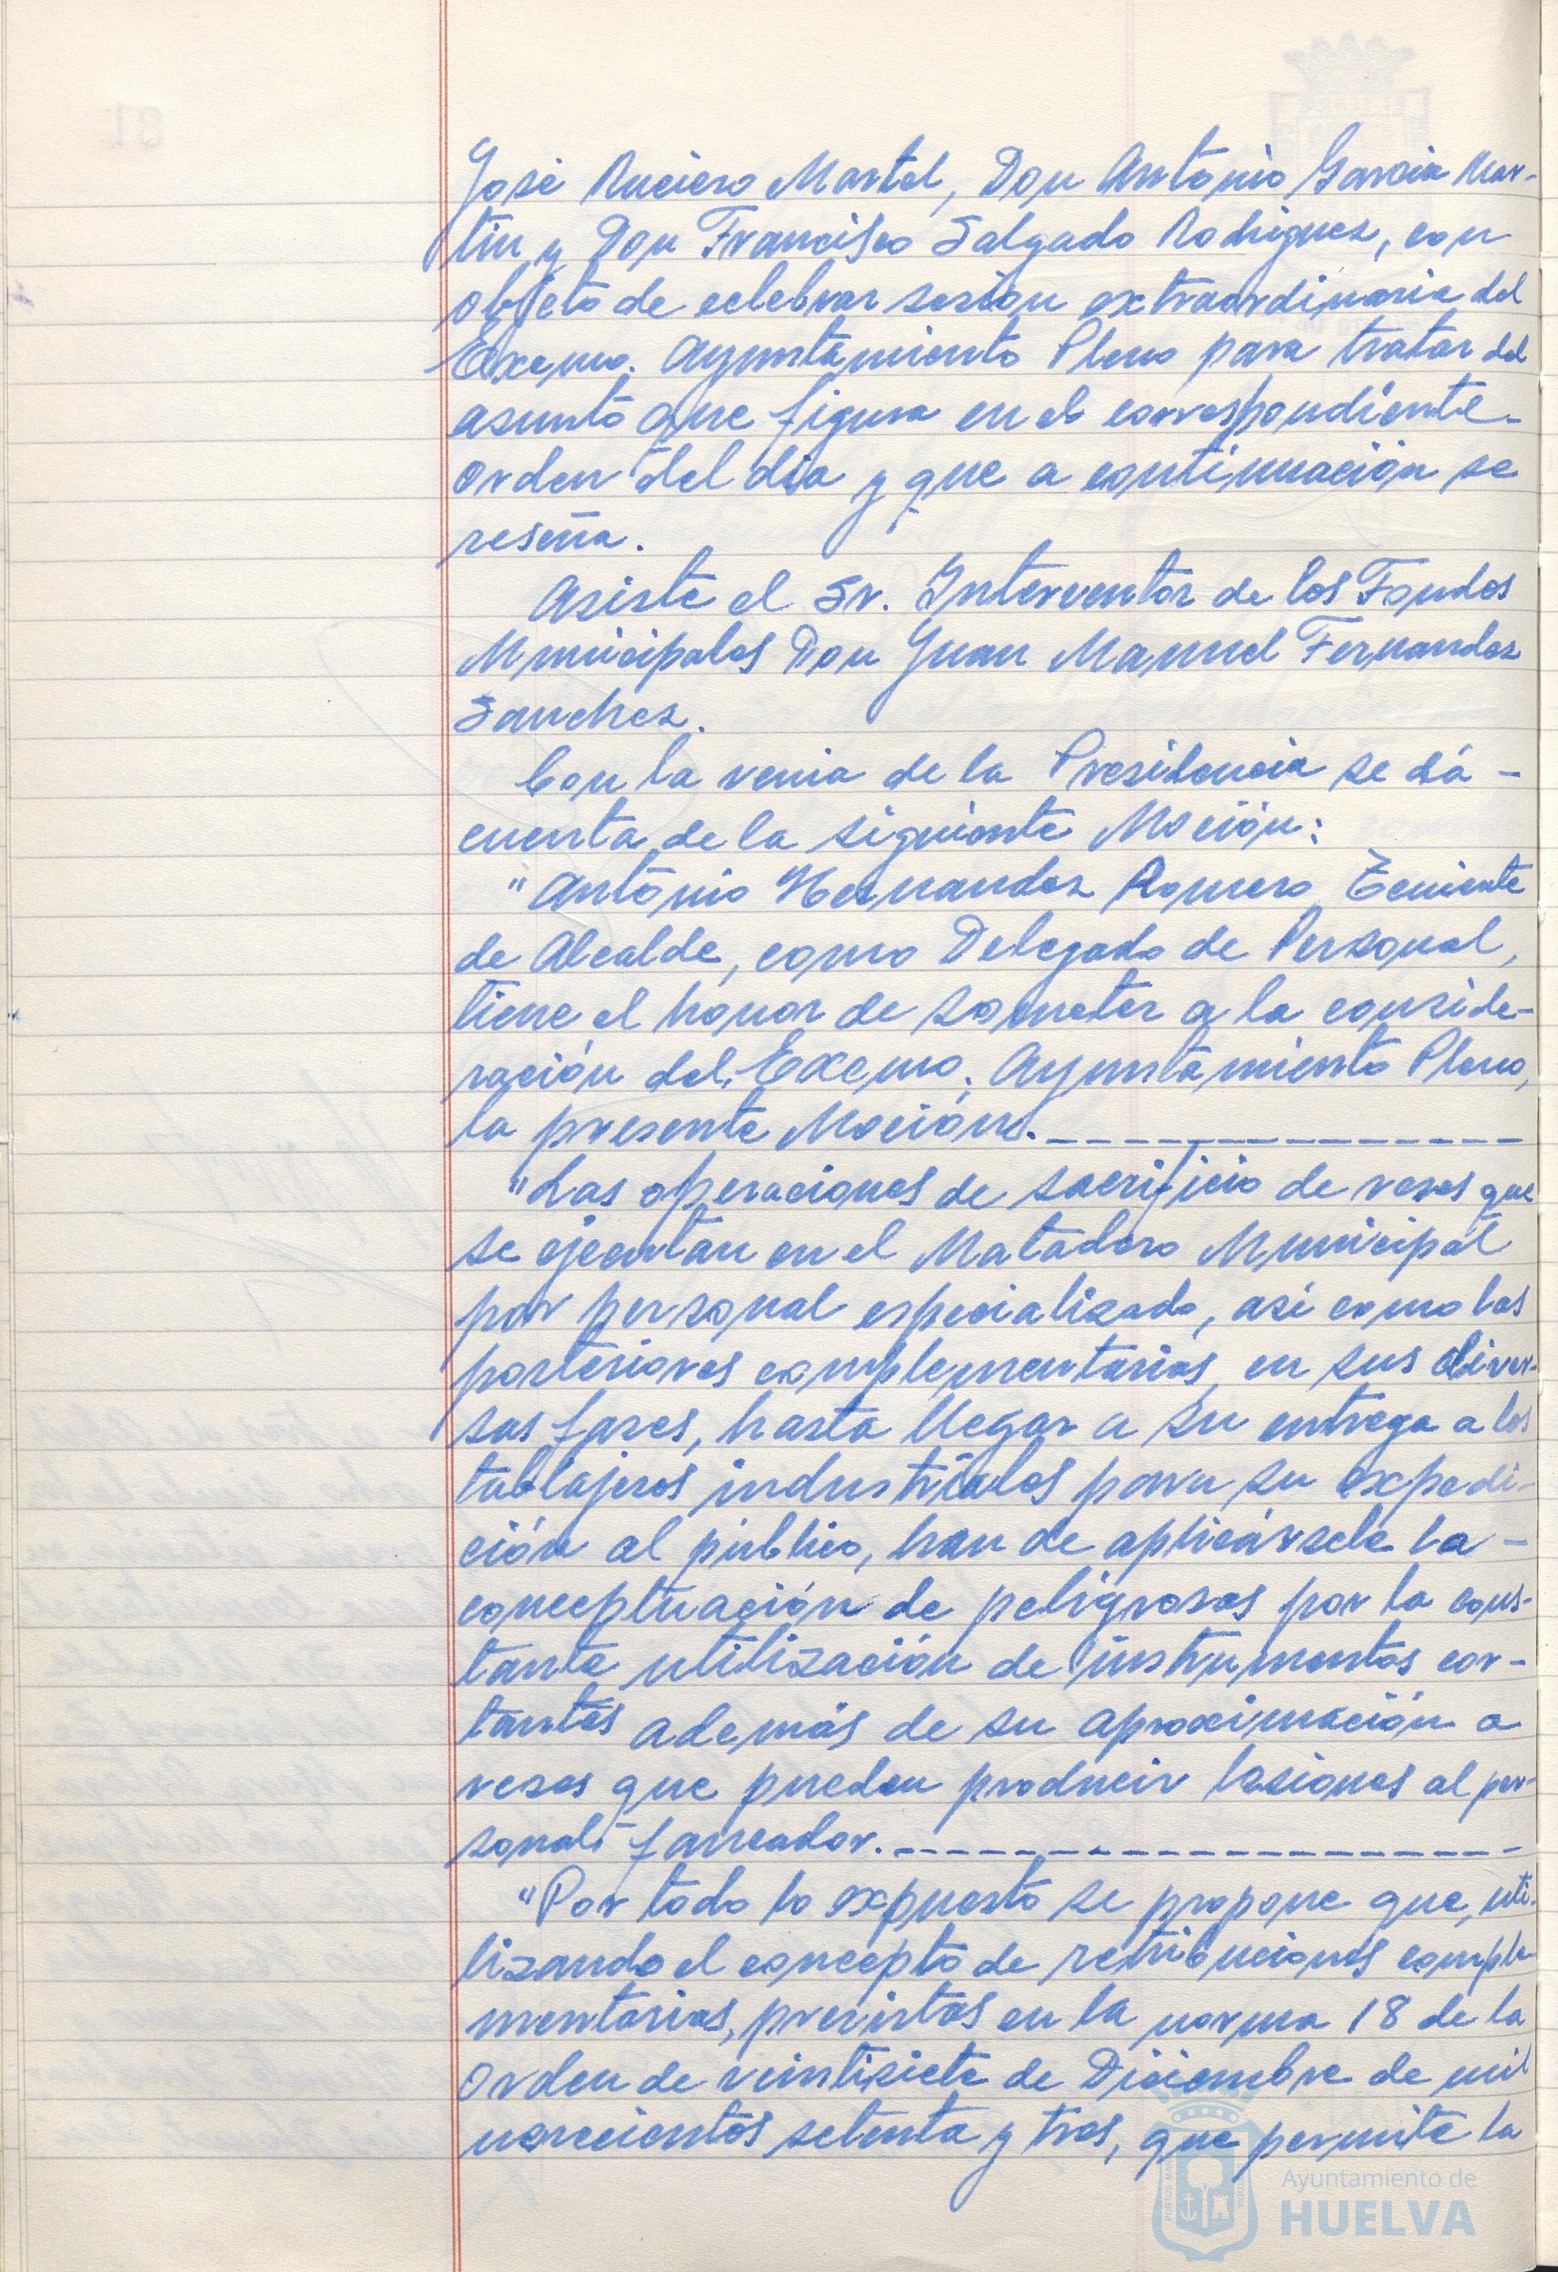 José Ruciero Martel, Don Antonio Garcia Mar-
tin y Don Francisco Salgado Rodriguez, con
objeto de celebrar sesion extraordinaria del
Excmo. Ayuntamiento Pleno para tratar del
asunto que figura en el correspondiente
orden del dia y que a continuación se
reseña.
Asiste el Sr. Interventor de los Fondos
Municipales Don Juan Manuel Fernandez
Sanchez.
Con la venia de la Presidencia se dá -
cuenta de la siguiente Moción:
"Antonio Hernandez Romero, Teniente
de Alcalde, como Delegado de Personal,
tiene el honor de someter a la conside-
ración del Excmo. Ayuntamiento Pleno,
la presente Moción.______________
"Las operaciones de sacrificio de reses que
se ejecutan en el Matadero Municipal
por personal especializado, asi como las
posteriores complementarias, en sus diver-
sas fases, hasta llegar a su entrega a los
tablajeros industriales para su expedi-
ción al público, han de aplicársele la -
conceptuación de peligrosas por la cons-
tante utilización de instrumentos cor-
tantes además de su aproximación a
reses que pueden producir lesiones al per-
sonal faneador.__________________
"Por todo lo expuesto se propone que, uti-
lizando el concepto de retribuciones comple-
mentarias, previstas en la norma 18 de la
Orden de veintisiete de Diciembre de mil
novecientos setenta y tres, que permite la
Ayuntamiento de
HUELVA